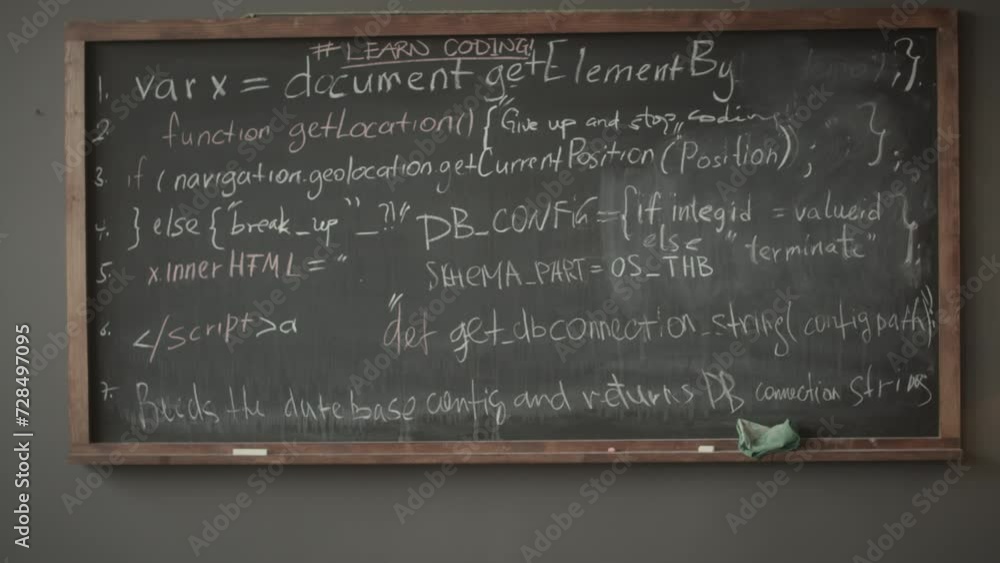 # LEARN CODING!
1. var x = document getElementBy );}.
2. function getLocation() { "Give up and stop,, coding };
3. if (navigation.geolocation.getCurrentPosition (Position));
4. } else { "break_up" _?!" DB_CONFIG={if integid = valueid };
else "terminate"
5. x.innerHTML = " SKHEMA_PART = OS_THB
6. </script>a "def get_dbconnection_string(configpath):
7. the datebase config and returns DB connection strings
Adobe Stock | #728497095